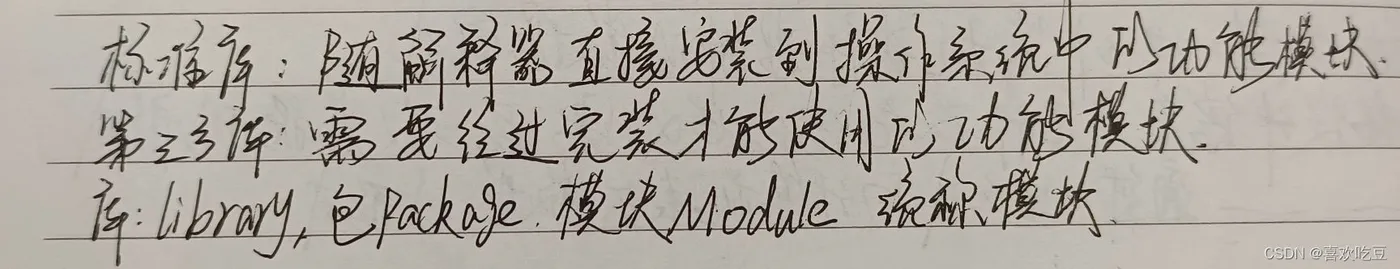 标准库：随解释器直接安装到操作系统中的功能模块.
第三方库：需要经过安装才能使用的功能模块.
库：library, 包Package. 模块Module 统称模块.
CSDN @喜欢吃豆